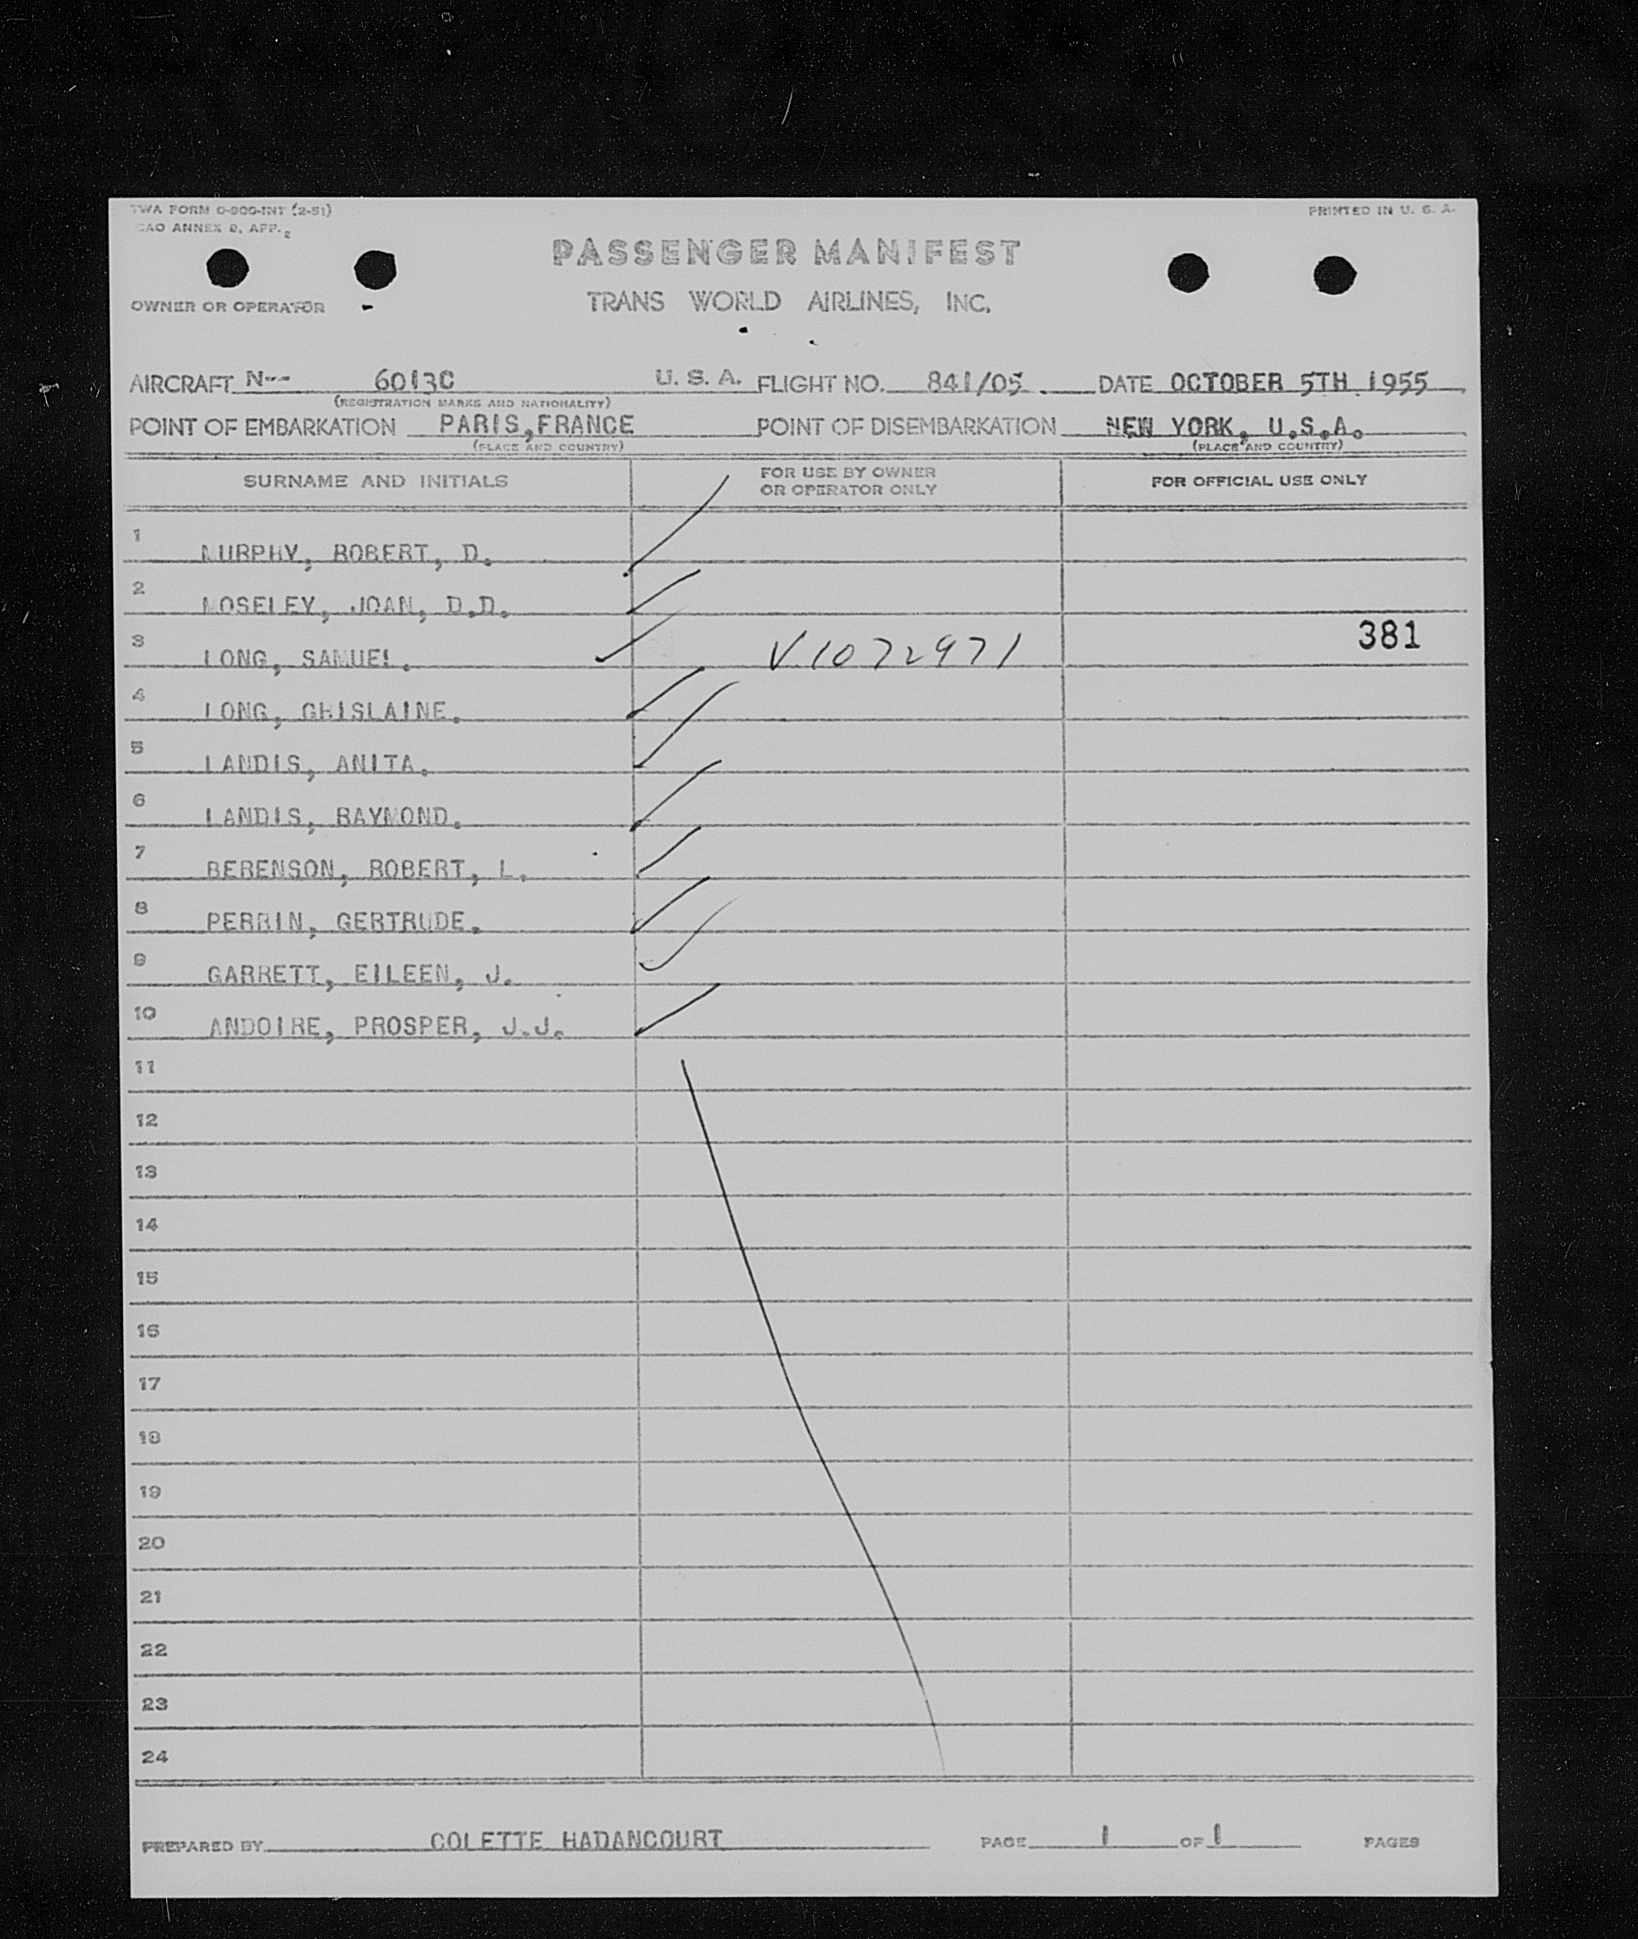 TWA FORM O-900-INT (2-51)
PRINTED IN U. S. A.
CAO ANNEX 9, APP. 2
PASSENGER MANIFEST
OWNER OR OPERATOR
TRANS WORLD AIRLINES, INC.
AIRCRAFT N-- 6013C U. S. A. FLIGHT NO. 841/05 DATE OCTOBER 5TH 1955
(REGISTRATION MARKS AND NATIONALITY)
POINT OF EMBARKATION PARIS,FRANCE POINT OF DISEMBARKATION NEW YORK, U.S.A.
(PLACE AND COUNTRY) (PLACE AND COUNTRY)
SURNAME AND INITIALS FOR USE BY OWNER OR OPERATOR ONLY FOR OFFICIAL USE ONLY
1 MURPHY, ROBERT, D.
2 MOSELEY, JOAN, D.D.
3 LONG, SAMUEL. V1072971 381
4 LONG, GHISLAINE.
5 LANDIS, ANITA.
6 LANDIS, RAYMOND.
7 BERENSON, ROBERT, L.
8 PERRIN, GERTRUDE.
9 GARRETT, EILEEN, J.
10 ANDOIRE, PROSPER, J.J.
11
12
13
14
15
16
17
18
19
20
21
22
23
24
PREPARED BY COLETTE HADANCOURT PAGE 1 OF 1 PAGES